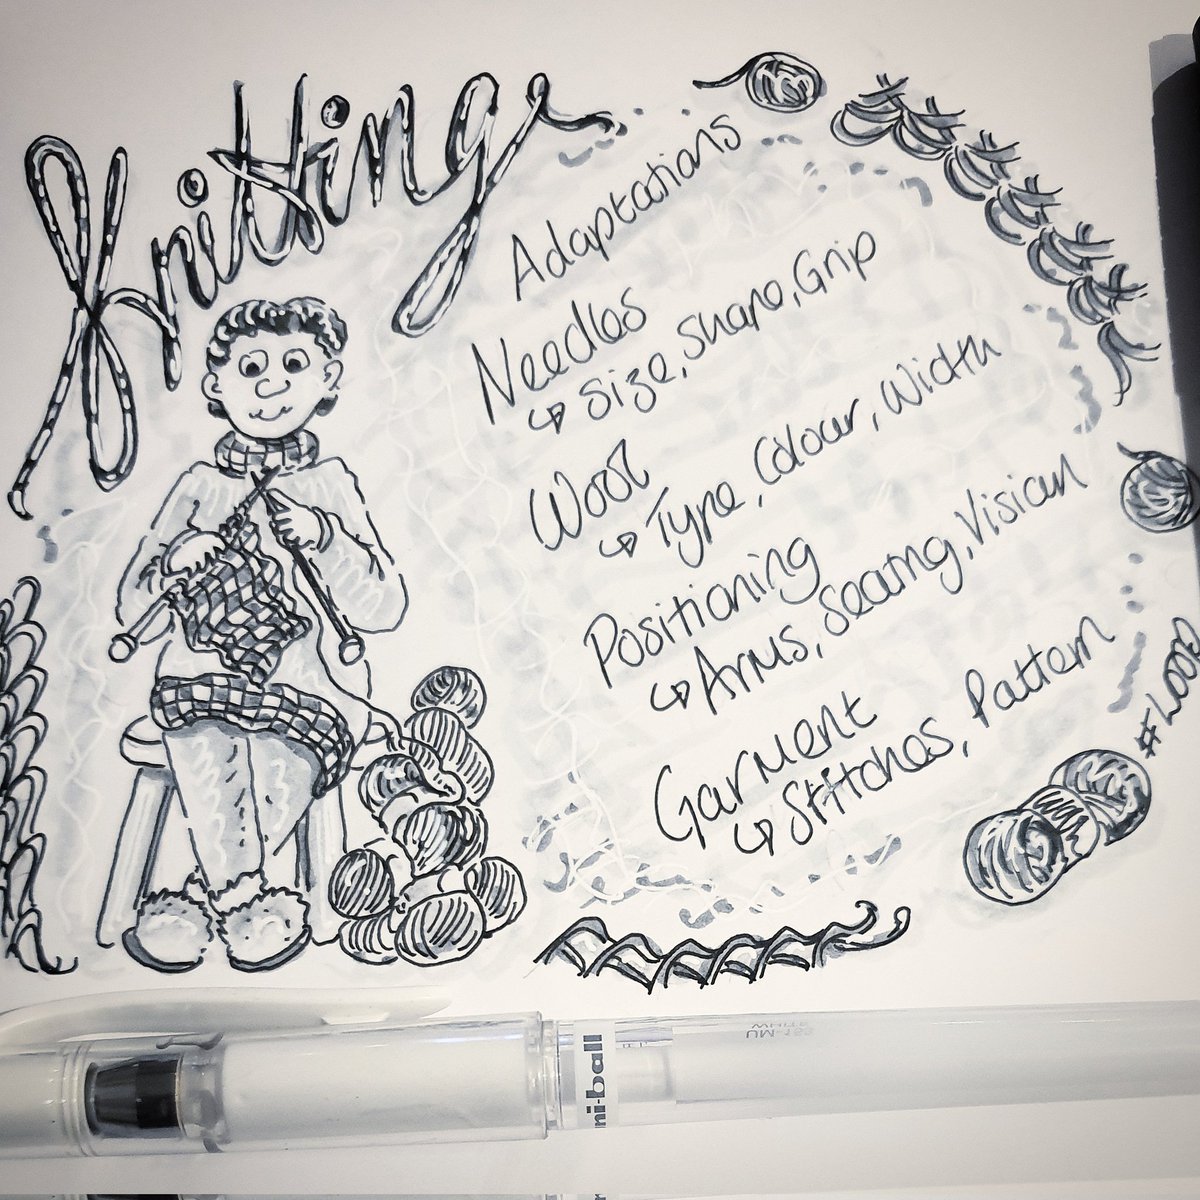 Knitting
Adaptations
Needles
↳ Size, Shape, Grip
Wool
↳ Type, Colour, Width
Positioning
↳ Arms, Seating, Vision
Garment
↳ Stitches, Pattern
ni-ball